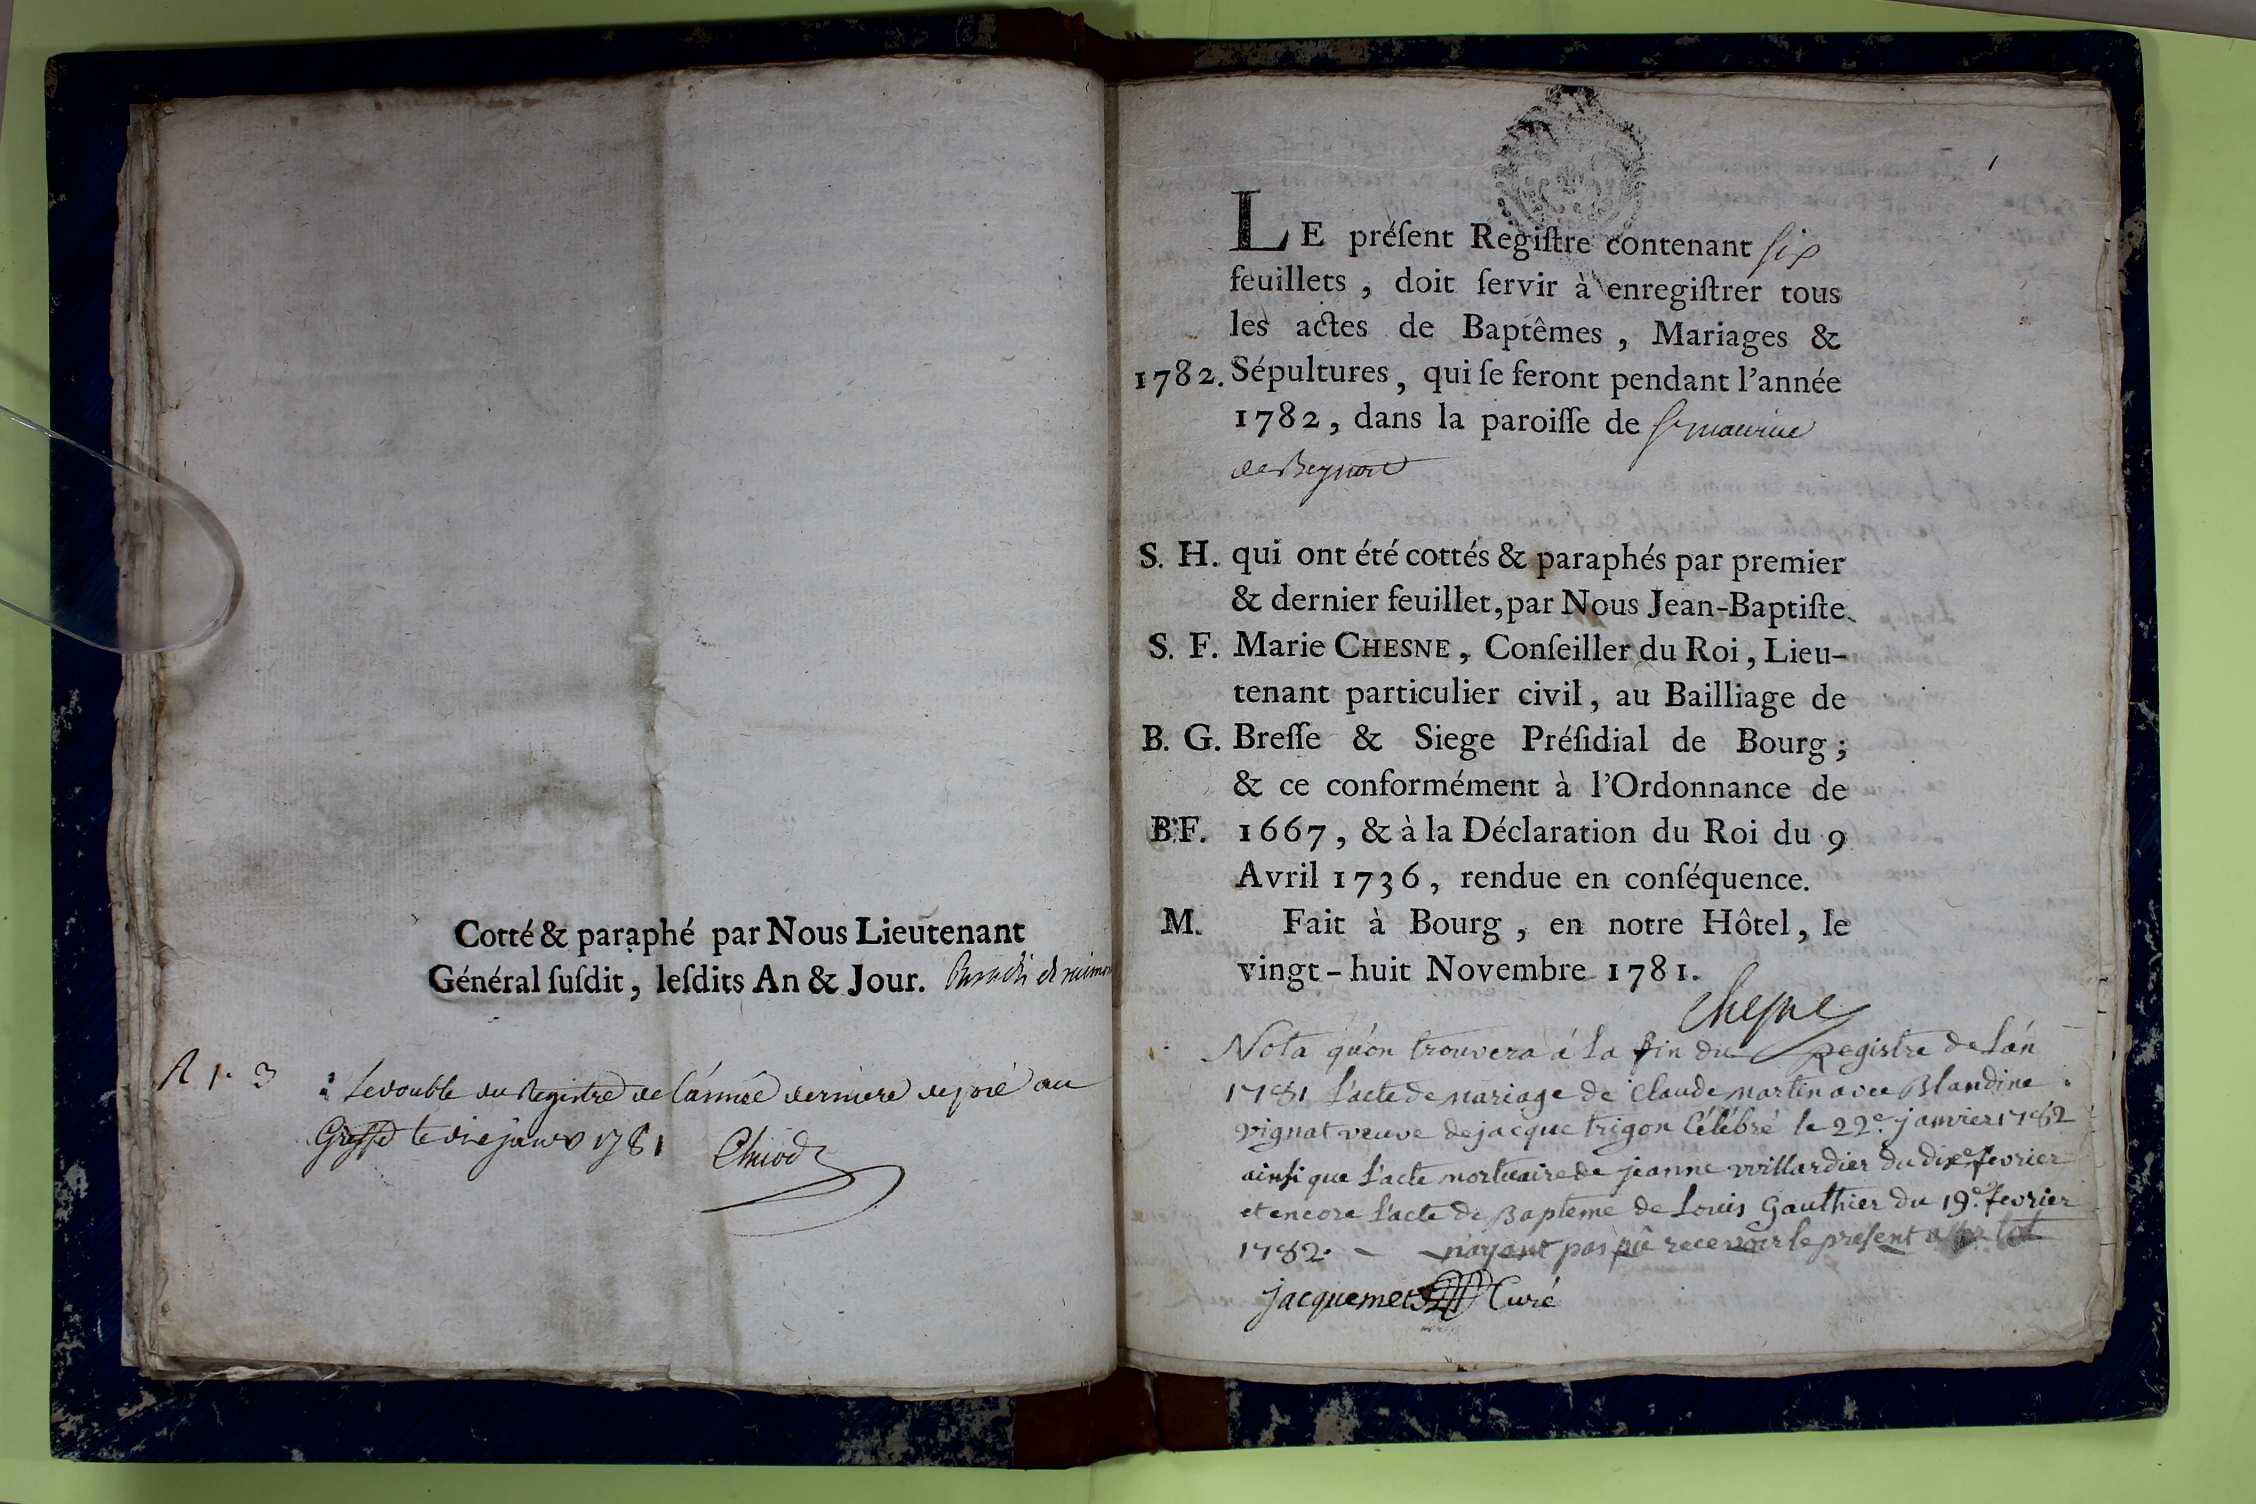 Cotté & paraphé par Nous Lieutenant
Général ſuſdit, leſdits An & Jour.
R 1. 3
Le double du Registre de l'année derniere deposé au
Greffe le dix janvr 1781
1
LE préſent Regiſtre contenant six
feuillets, doit ſervir à enregiſtrer tous
les actes de Baptêmes, Mariages &
1782. Sépultures, qui ſe feront pendant l'année
1782, dans la paroiſſe de St maurice
de Beynost
S. H. qui ont été cottés & paraphés par premier
& dernier feuillet, par Nous Jean-Baptiſte
S. F. Marie CHESNE, Conſeiller du Roi, Lieu-
tenant particulier civil, au Bailliage de
B. G. Breſſe & Siege Préſidial de Bourg;
& ce conformément à l'Ordonnance de
B.F. 1667, & à la Déclaration du Roi du 9
Avril 1736, rendue en conſéquence.
M. Fait à Bourg, en notre Hôtel, le
vingt-huit Novembre 1781.
Chesne
Nota qu'on trouvera á la fin du Registre de l'án
1781 l'acte de mariage de Claude martin avec Blandine
vignat veuve de jacque trigon Célébré le 22e. janvier 1782
ainſi que l'acte mortuaire de jeanne villardier du dixe fevrier
et encore l'acte de Bapteme de Louis Gauthier du 19e. fevrier
1782. n'ayant pas pû recevoir le preſent assez tot
jacquemet Curé